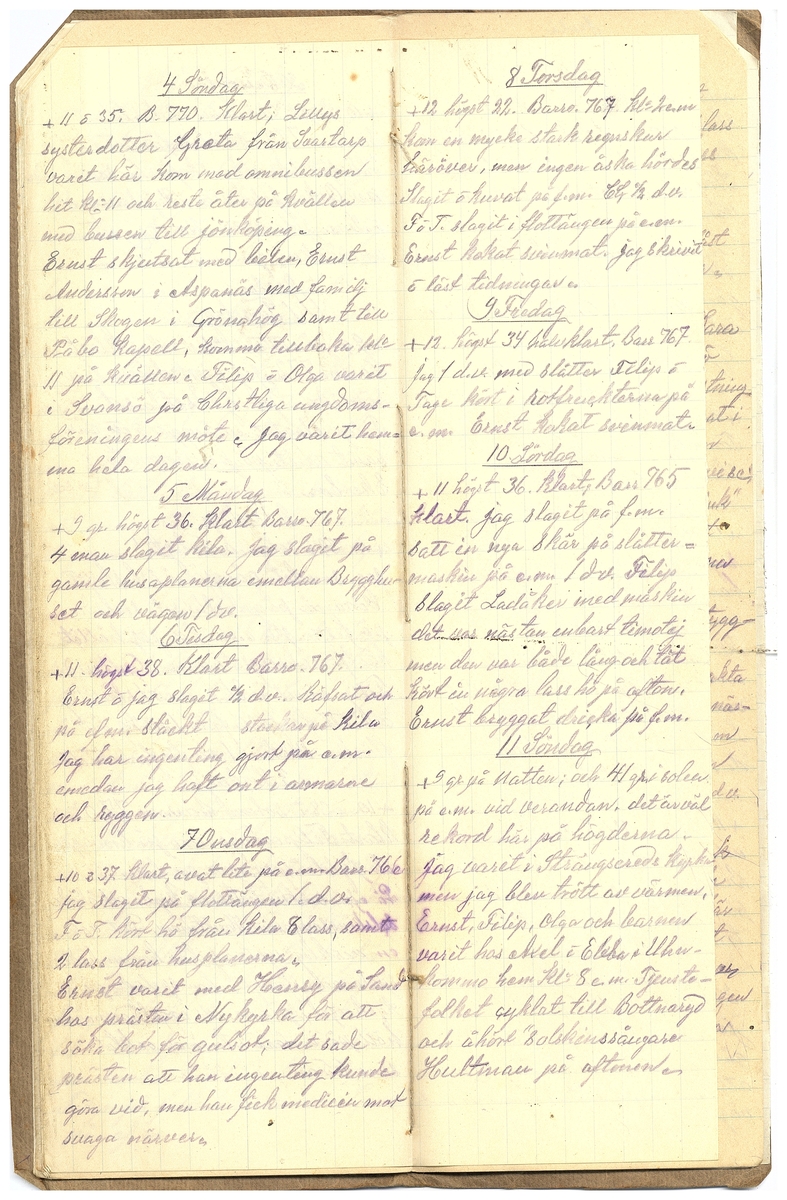 4 Söndag
+11 o 35. B. 770. Klart; Lillys
systerdotter Greta från Svastarp
varit här kom med omnibussen
hit kl: 11 och reste åter på kvällen
med bussen till jönköping.
Ernst skjutsat med bilen, Ernst
Andersson i Aspanäs med familj
till Skogen i Grönahög samt till
Råbo Kapell, komma tillbaka kl:
11 på kvällen. Filip o Olga varit
i Svansö på Christliga ungdoms-
föreningens möte. Jag varit hem=
ma hela dagen.
5 Måndag
+9 gr. högst 36. Klart, Barro. 767.
4 man slagit kila. Jag slagit på
gamle husaplanerna emellan Brygghu-
set och vägen 1 dv.
6 Tisdag
+11. högst 38. Klart Barro. 767.
Ernst o jag slagit ½ d.v. Räfsat och
på f.m. stäckt på Kila
Jag har ingenting gjort på e.m.
emedan jag haft ont i armarne
och ryggen.
7 Onsdag
+10 o 37 Klart, avat lite på e.m. Barr 766
jag slagit på flottängen 1. d.v.
F o T. kört hö från Kila 6 lass, samt
2 lass från husplanerna.
Ernst varit med Henry på Sand
hos prästen i Nykyrka för att
söka bot för gulsot; det sade
prästen att han ingenting kunde
göra vid, men han fick medicin mot
svaga närver.
8 Torsdag
+12 högst 22. Barro. 767 kl: 2 e.m
kom en mycke stark regnskur
häröver, men ingen åska hördes
Slagit o kuvat på f.m. ½ d.v.
F o T. slagit i flottängen på e.m.
Ernst kokat svinmat. jag skrivit
o läst tidningar.
9 Fredag
+12. högst 34 halvklart, Barr 767.
jag 1 d.v. med slåtter Filip o
Tage kört i rotfrukterna på
e.m. Ernst kokat svinmat.
10 Lördag
+11 högst 36. Klart, Barr 765
klart. jag slagit på f.m.
satt in nya skär på slåtter=
maskin på e.m. 1 dv. Filip
slagit Ladåker med maskin
det var nästan enbart timotej
men den var både lång och tät
kört in några lass hö på afton.
Ernst bryggat dricka på f.m.
11 Söndag
+9 gr på natten; och 41 gr. i solen
på e.m. vid verandan. det är väl
rekord här på högderna.
Jag varit i Strängsereds kyrka
men jag blev trött av värmen,
Ernst, Filip, Olga och barnen
varit hos Axel o Ebba i Uhu-
kommo hem Kl: 8 e.m. Tjenste=
folket cyklat till Bottnaryd
och åhört "Solskenssångare
Hultman på aftonen.